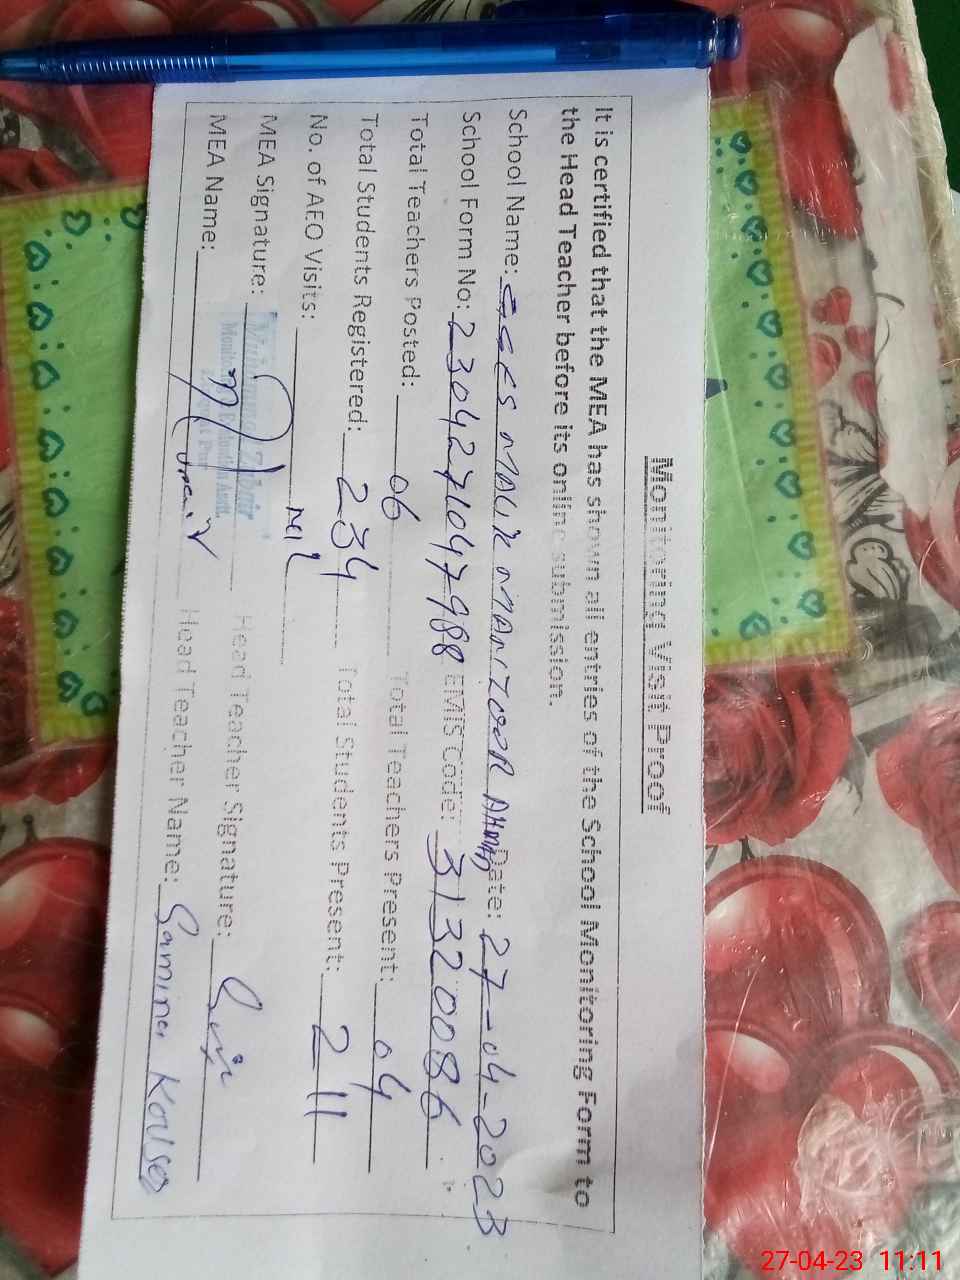 Monitoring Visit Proof
It is certified that the MEA has shown all entries of the School Monitoring Form to
the Head Teacher before its online submission.
School Name: GGES MALIK MANZOOR AHMAD Date: 27-04-2023
School Form No: 2304271047988 EMIS Code: 31320086
Total Teachers Posted: 06 Total Teachers Present: 04
Total Students Registered: 234 Total Students Present: 211
No. of AEO Visits: Nil
MEA Signature: Head Teacher Signature:
MEA Name: Head Teacher Name: Samina Kouser
27-04-23 11:11